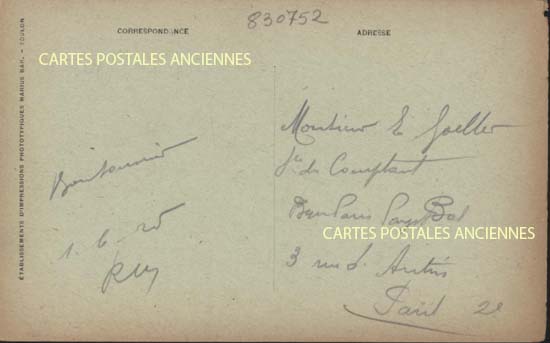 830752
CORRESPONDANCE
ADRESSE
CARTES POSTALES ANCIENNES
ÉTABLISSEMENTS D'IMPRESSIONS PHOTOTYPIQUES MARIUS BAR. — TOULON
Bon Souvenir
1. 6. 25
Monsieur E Goeller
de Comptant
3 rue d'Antin
Paris 2e
CARTES POSTALES ANCIENNES